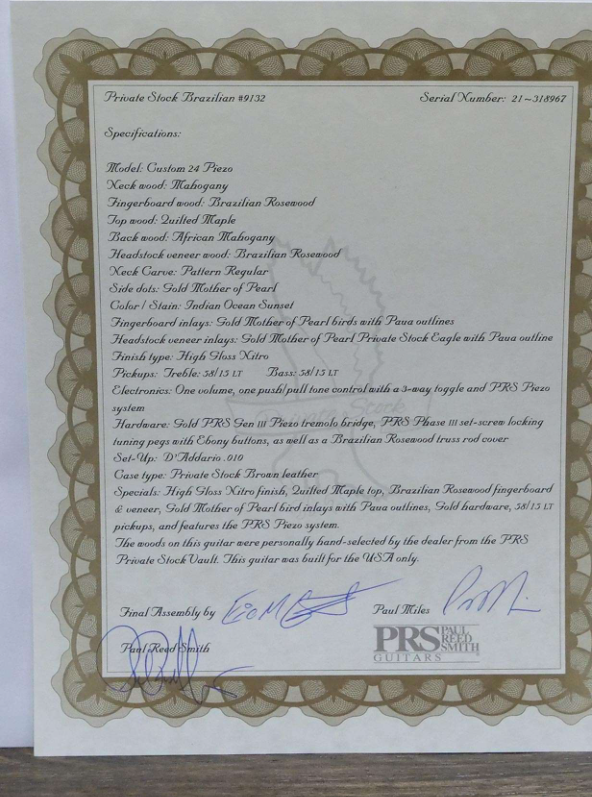 Private Stock Brazilian #9132 Serial Number: 21~318967
Specifications:
Model: Custom 24 Piezo
Neck wood: Mahogany
Fingerboard wood: Brazilian Rosewood
Top wood: Quilted Maple
Back wood: African Mahogany
Headstock veneer wood: Brazilian Rosewood
Neck Carve: Pattern Regular
Side dots: Gold Mother of Pearl
Color / Stain: Indian Ocean Sunset
Fingerboard inlays: Gold Mother of Pearl birds with Paua outlines
Headstock veneer inlays: Gold Mother of Pearl Private Stock Eagle with Paua outline
Finish type: High Gloss Nitro
Pickups: Treble: 58/15 LT Bass: 58/15 LT
Electronics: One volume, one push/pull tone control with a 3-way toggle and PRS Piezo
system
Hardware: Gold PRS Gen III Piezo tremolo bridge, PRS Phase III set-screw locking
tuning pegs with Ebony buttons, as well as a Brazilian Rosewood truss rod cover
Set-Up: D'Addario .010
Case type: Private Stock Brown leather
Specials: High Gloss Nitro finish, Quilted Maple top, Brazilian Rosewood fingerboard
& veneer, Gold Mother of Pearl bird inlays with Paua outlines, Gold hardware, 58/15 LT
pickups, and features the PRS Piezo system.
The woods on this guitar were personally hand-selected by the dealer from the PRS
Private Stock Vault. This guitar was built for the USA only.
Final Assembly by Paul Miles
Paul Reed Smith
PRS PAUL REED SMITH
GUITARS